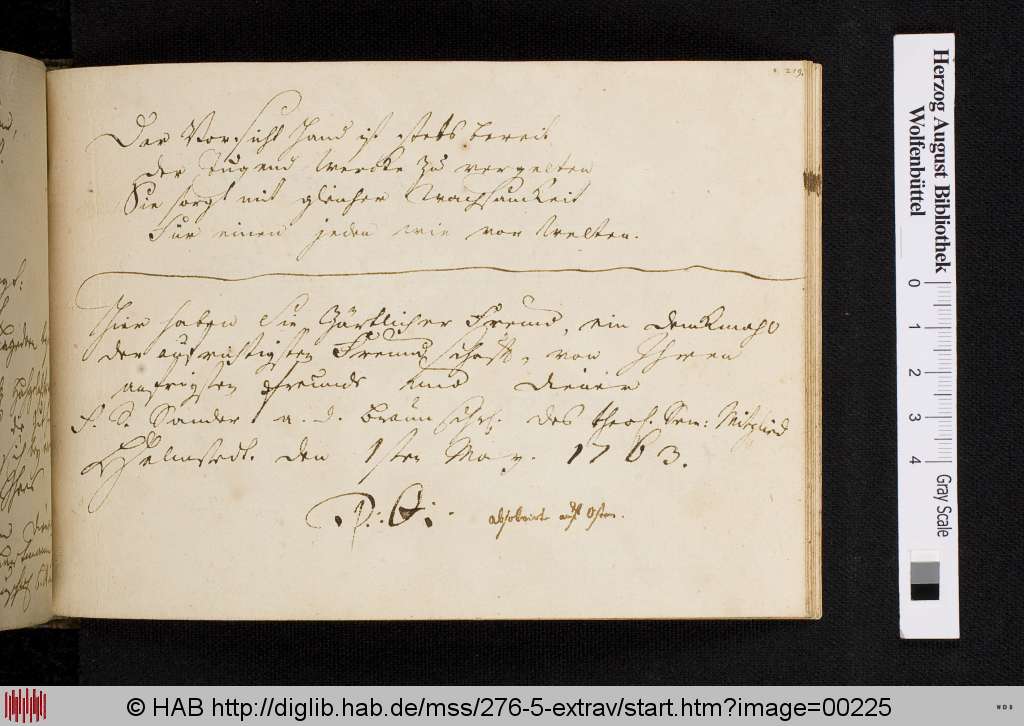 219.
Der Vorsicht Hand ist stets bereit
der Tugend Wercke zu vergelten
Sie sorgt mit gleicher Wachsamkeit
Für einen jeden wie vor Welten.
Hier haben Sie Zärtlicher Freund, ein Denkmahl
der aufrichtigsten Freundschafft, von Ihren
aufrigsten Freunde und Diener
Sander a. d. Braunschw. des theol. Sem: Mitglied
Helmstedt. den 1sten May. 1763.
absolvirte auf Ostern.
Herzog August Bibliothek
Wolfenbüttel
0 1 2 3 4
Gray Scale
© HAB http://diglib.hab.de/mss/276-5-extrav/start.htm?image=00225